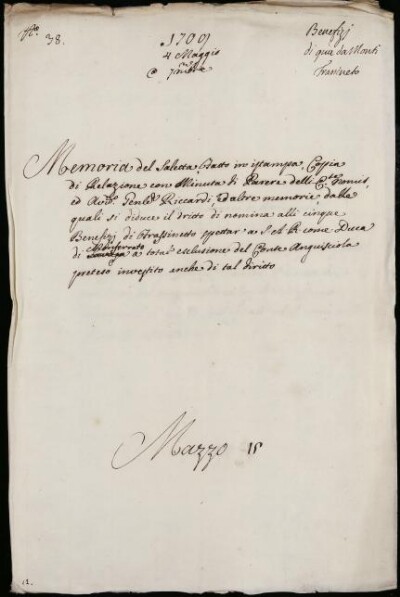 N.º 38.
1709
4 Maggio
e 7mbre
Benefizj
di quà da Monti
Frassineto
Memoria del Saletta, Fatto in istampa, Coppia
di Relazione con Minuta di Parere delli
ed Avv.º Gen.le Riccardi, ed altre memorie, dalle
quali si deduce il dritto di nomina alli cinque
Benefizj di Frassinetto spettar a S A R come Duca
di Monferrato a total esclusione del Conte Anguissola
preteso investito anche di tal diritto
Mazzo 15
12.